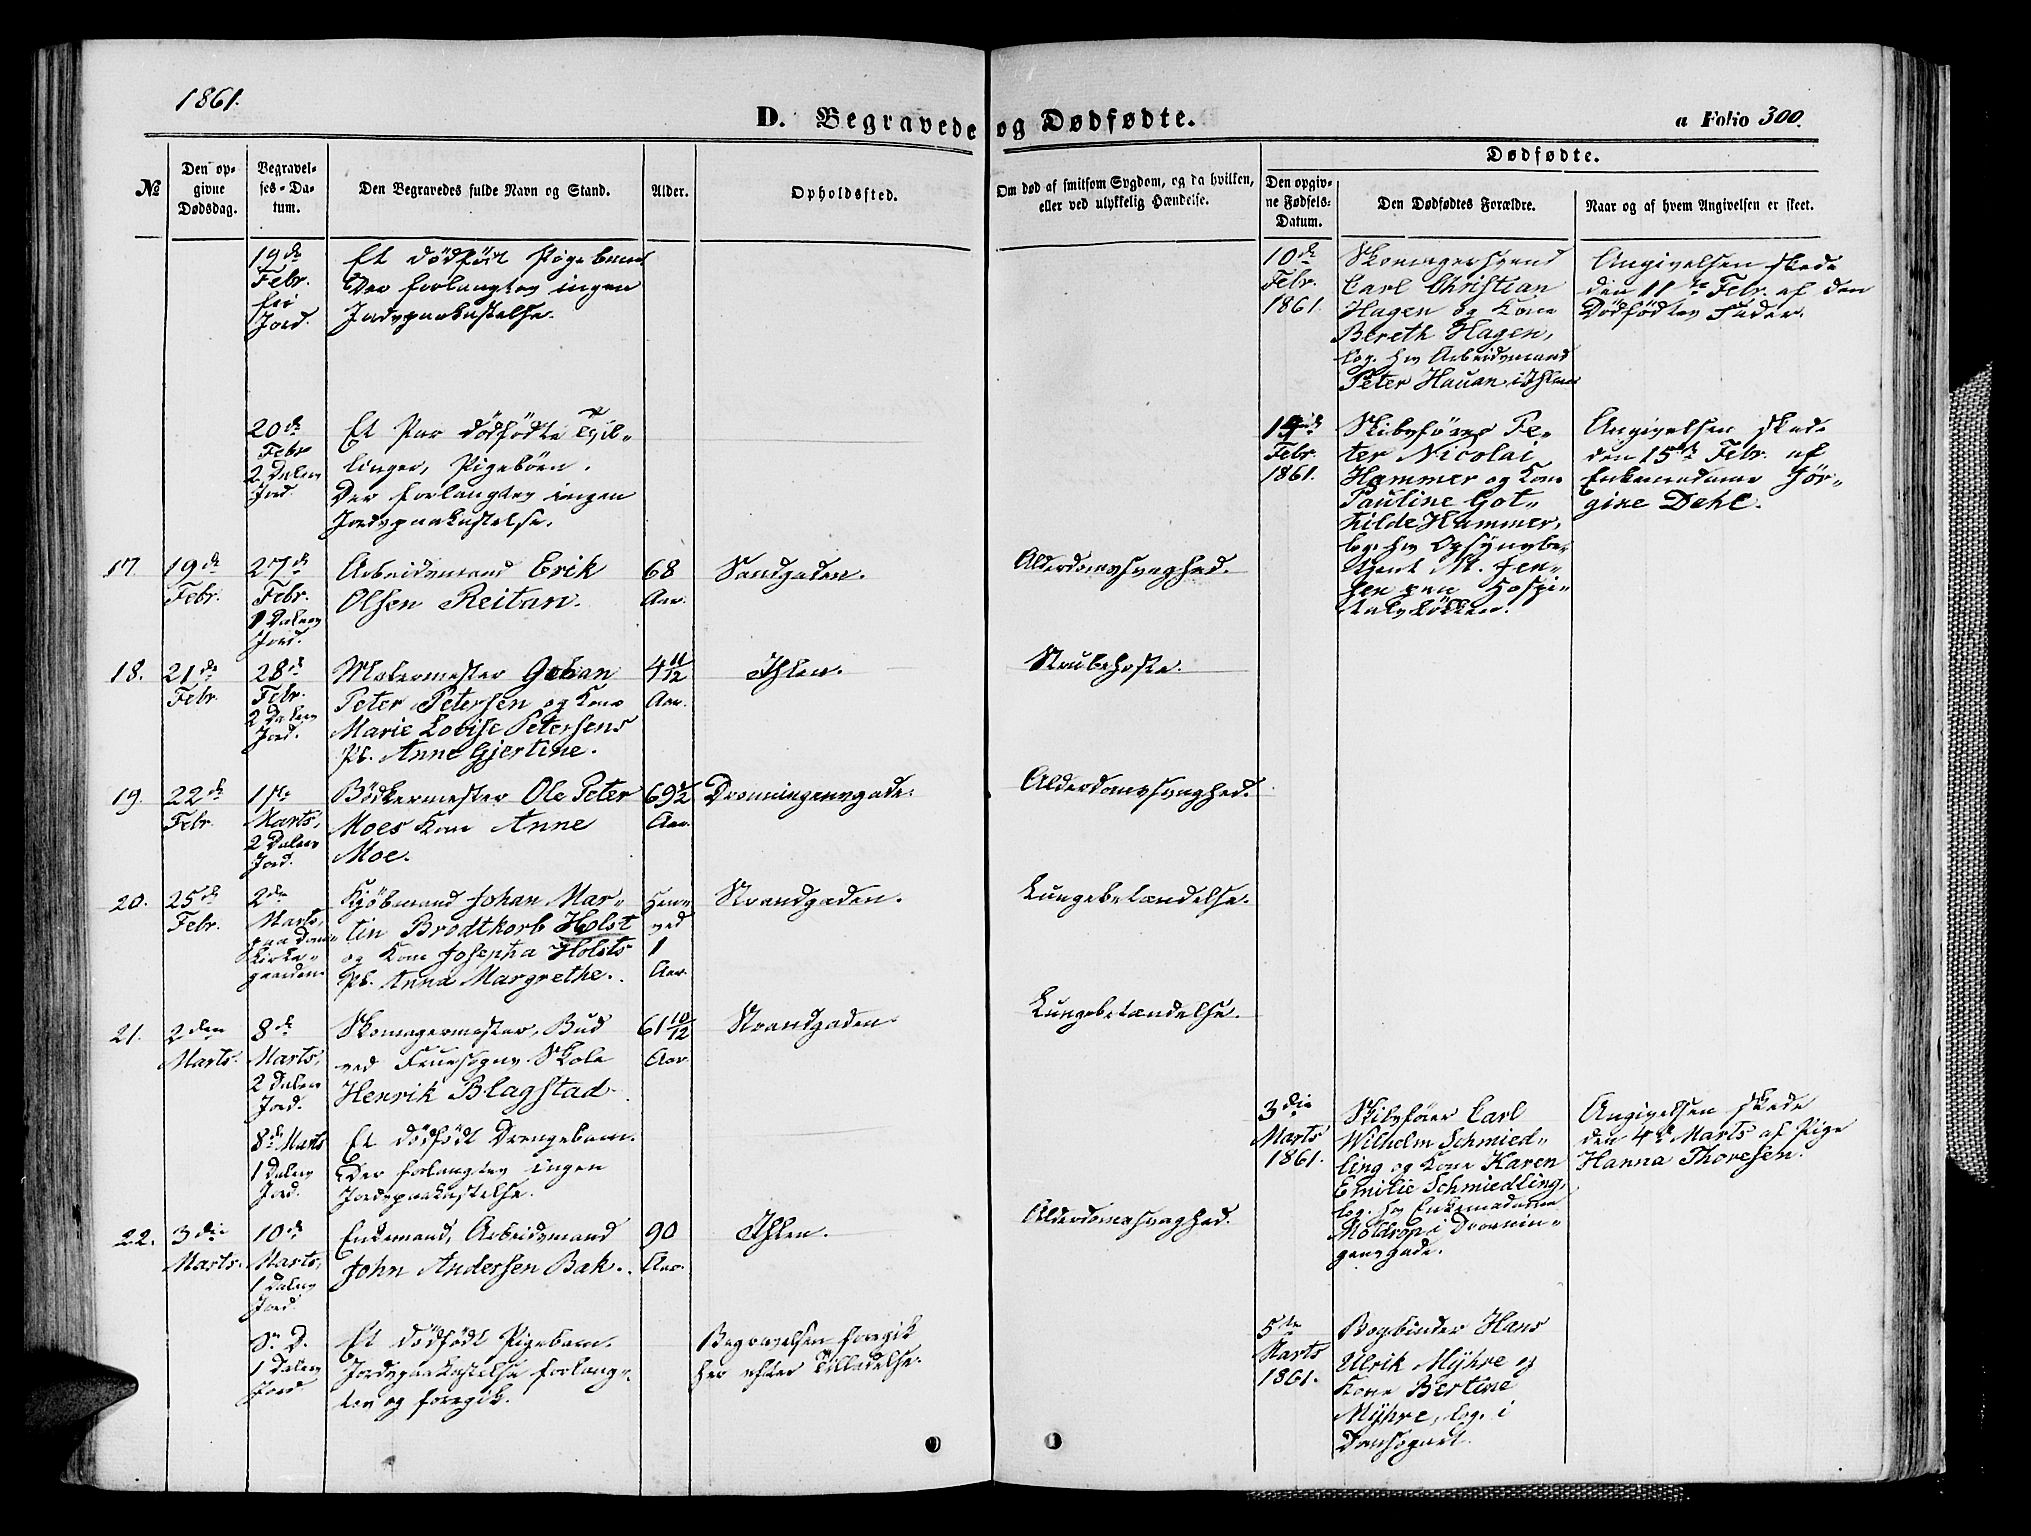 1861.
D. Begravede og Dødfødte.
a Folio 300.
No
Den op-
givne
Dødsdag.
Begravel-
ses-Da-
tum.
Den Begravedes fulde Navn og Stand.
Alder.
Opholdssted.
Om død af smitsom Sygdom, og da hvilken,
eller ved ulykkelig Hændelse.
Dødfødte.
Den opgiv-
ne Fødsels-
Datum.
Den Dødfødtes Forældre.
Naar og af hvem Angivelsen er skeet.
19de
Febr.
fri
Jord.
Et dödfödt Pigebarn
Der forlangtes ingen
Jordspaakastelse.
10de
Febr.
1861.
Skomagersvend
Carl Christian
Hagen og Kone
Bereth Hagen,
log. hos Arbeidsmand
Peter Hauan i Ihlen
Angivelsen skede
den 11te Febr. af den
Dödfödtes Fader.
20de
Febr
2 Dalers
Jord.
Et Par dödfödte Tvil-
linger, Pigebörn.
Der forlangtes ingen
Jordspaakastelse.
Febr.
1861.
Skibsförer Pe-
ter Nicolai
Hammer og Kone
Pauline Got-
hilde Hammer,
log. hos Opsynsbe-
tjent M. Jen-
sen paa Hospi-
talslökken.
Angivelsen skede
den 15de Febr. af
Enkemadame Jör-
gine Dehl.
17.
19de
Febr.
27de
Febr.
1 Dalers
Jord.
Arbeidsmand Erik
Olsen Reitan.
68
Aar.
Sandgaden.
Alderdomssvaghed.
18.
21de
Febr.
28de
Febr.
2 Dalers
Jord.
Malermester Johan
Peter Petersen og Kone
Marie Lovise Petersens
Pb. Anne Gjertine.
4 11/12
Aar.
Ihlen.
Strubehoste.
19.
22de
Febr.
1ste
Marts,
2 Dalers
Jord.
Bödkermester Ole Peter
Moes Kone Anne
Moe.
69 1/2
Aar.
Dronningensgade.
Alderdomssvaghed.
20.
25de
Febr.
2den
Marts,
paa Dom-
kirke-
gaarden.
Kjöbmand Johan Mar-
tin Brodtkorb Holst
og Kone Josepha Holsts
Pb. Anna Margrethe.
Hen-
ved
1
Aar.
Strandgaden.
Lungebetændelse.
21.
2den
Marts.
8de
Marts,
2 Dalers
Jord.
Skomagermester, Bud
ved Fruesogns Skole
Henrik Blagstad.
61 10/12
Aar.
Strandgaden.
Lungebetændelse.
8de Marts
1 Dalers
Jord.
Et dödfödt Drengebarn.
Der forlangtes ingen
Jordspaakastelse.
3die
Marts
1861.
Skibsförer Carl
Wilhelm Schmied-
ling og Kone Karen
Emilie Schmiedling,
log. hos Enkemadame
Moldrop i Dronnin-
gens Gade.
Angivelsen skede
den 4de Marts af Pige
Hanna Thoresen.
22.
3die
Marts.
10de
Marts,
1 Dalers
Jord.
Enkemand, Arbeidsmand
John Andersen Bak.
90
Aar.
Ihlen.
Alderdomssvaghed.
S. D.
1 Dalers
Jord.
Et dödfödt Pigebarn.
Jordspaakastelse forlang-
tes og foregik.
Begravelsen foregik
her efter Tilladelse.
5te
Marts
1861.
Bogbinder Hans
Ulrik Myhre og
Kone Bertine
Myhre, log. i